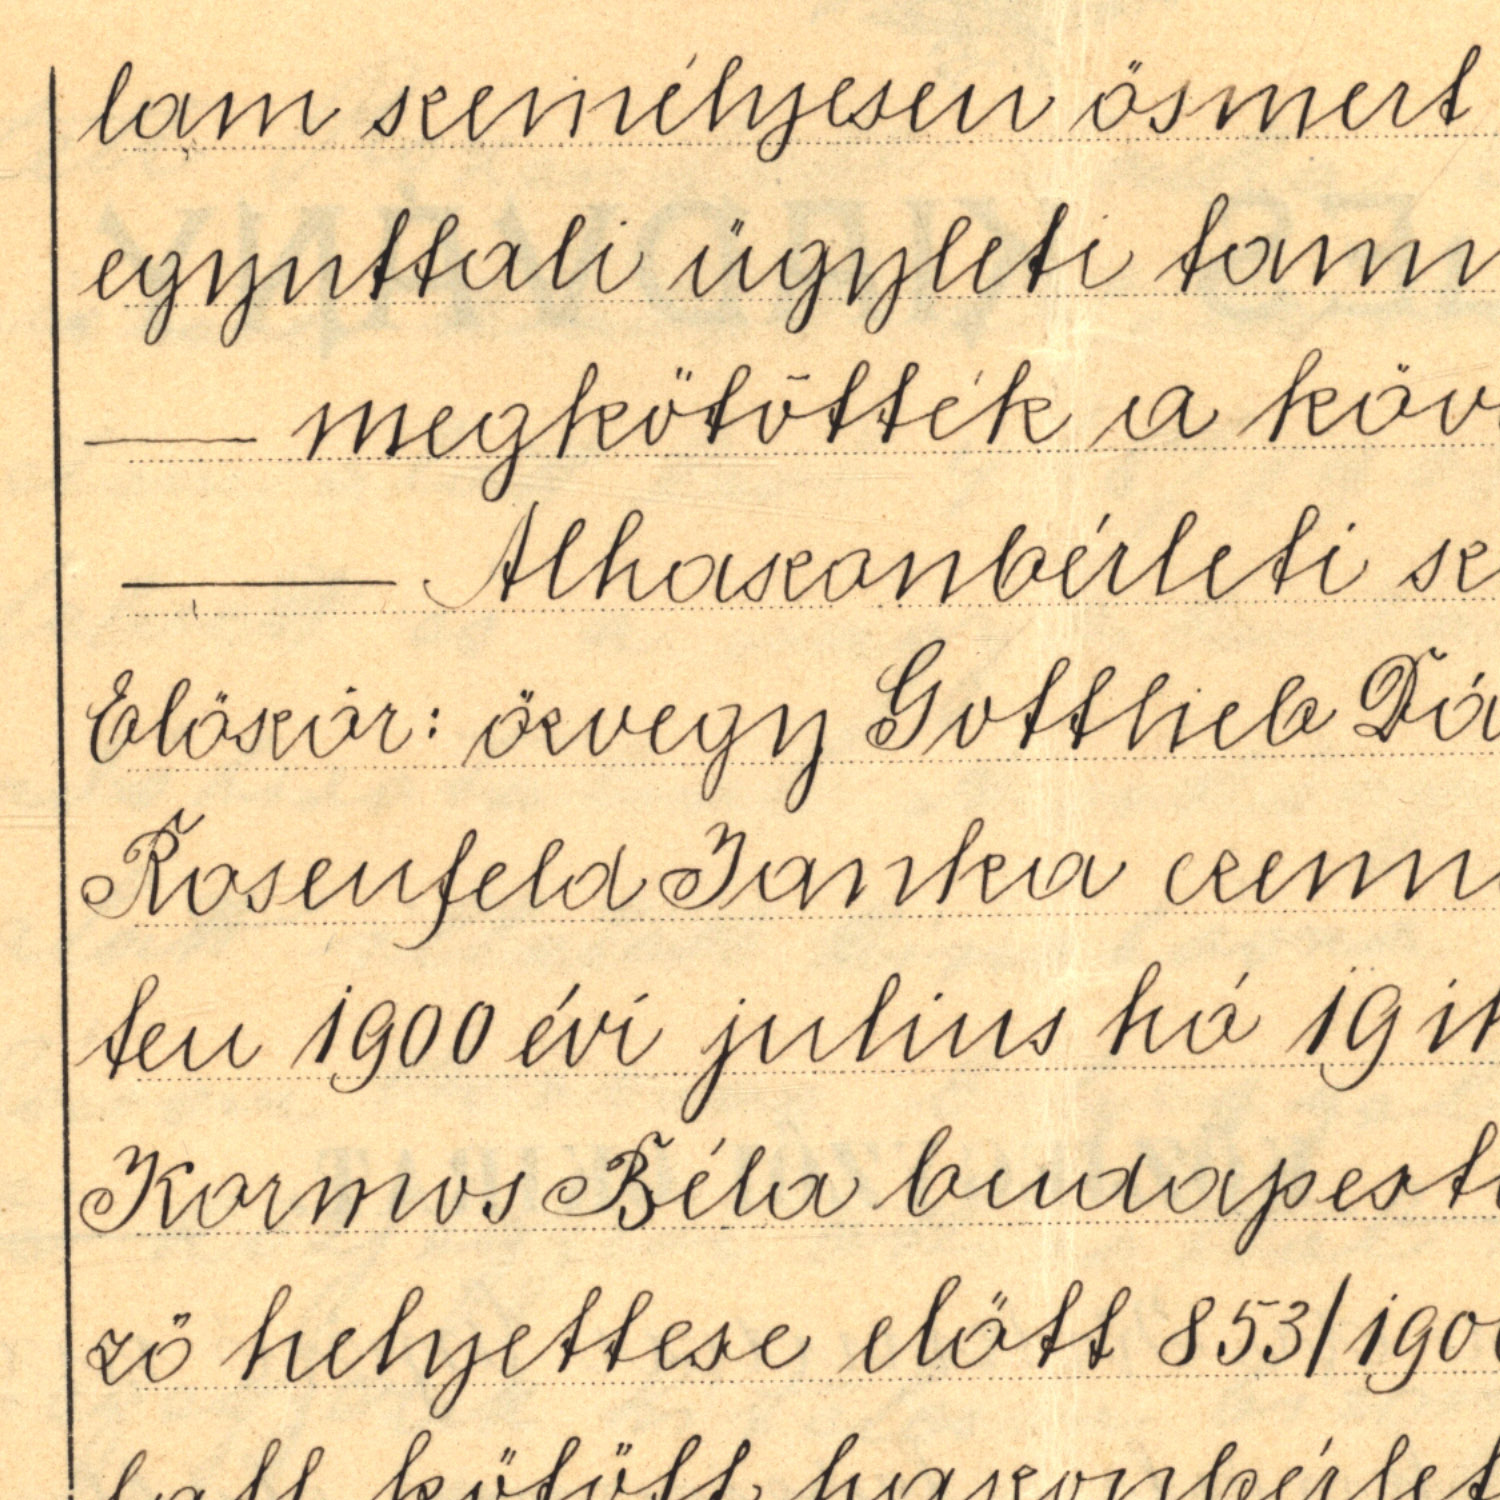 lam személyesen ösmert
egyuttali ügyleti tanu
—— megkötötték a köv
—— Alhaszonbérleti sz
Elöször: özvegy Gottlieb Dá
Rosenfeld Janka czenn
ten 1900 évi julius hó 19 ik
Kormos Béla budapesti
zö helyettese elött 853/1900
latt kötött haszonbérlet